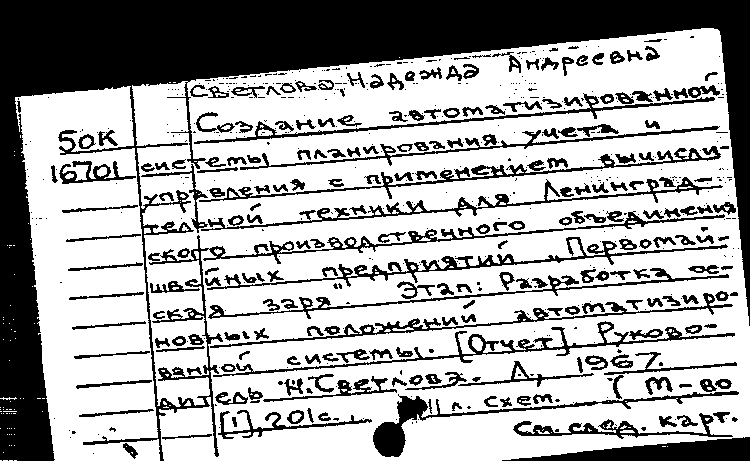 Светлова, Надежда Андреевна
Создание автоматизированной
50к
16701
системы планирования, учета и
управления с применением вычисли-
тельной техники для Ленинград-
ского производственного объединения
швейных предприятий „Первомай-
ская заря“. Этап: Разработка ос-
новных положений автоматизиро-
ванной системы. [Отчет]. Руково-
дитель Н. Светлова. Л., 1967.
[1], 201 с., 11 л. схем. (М-во
См. след. карт.